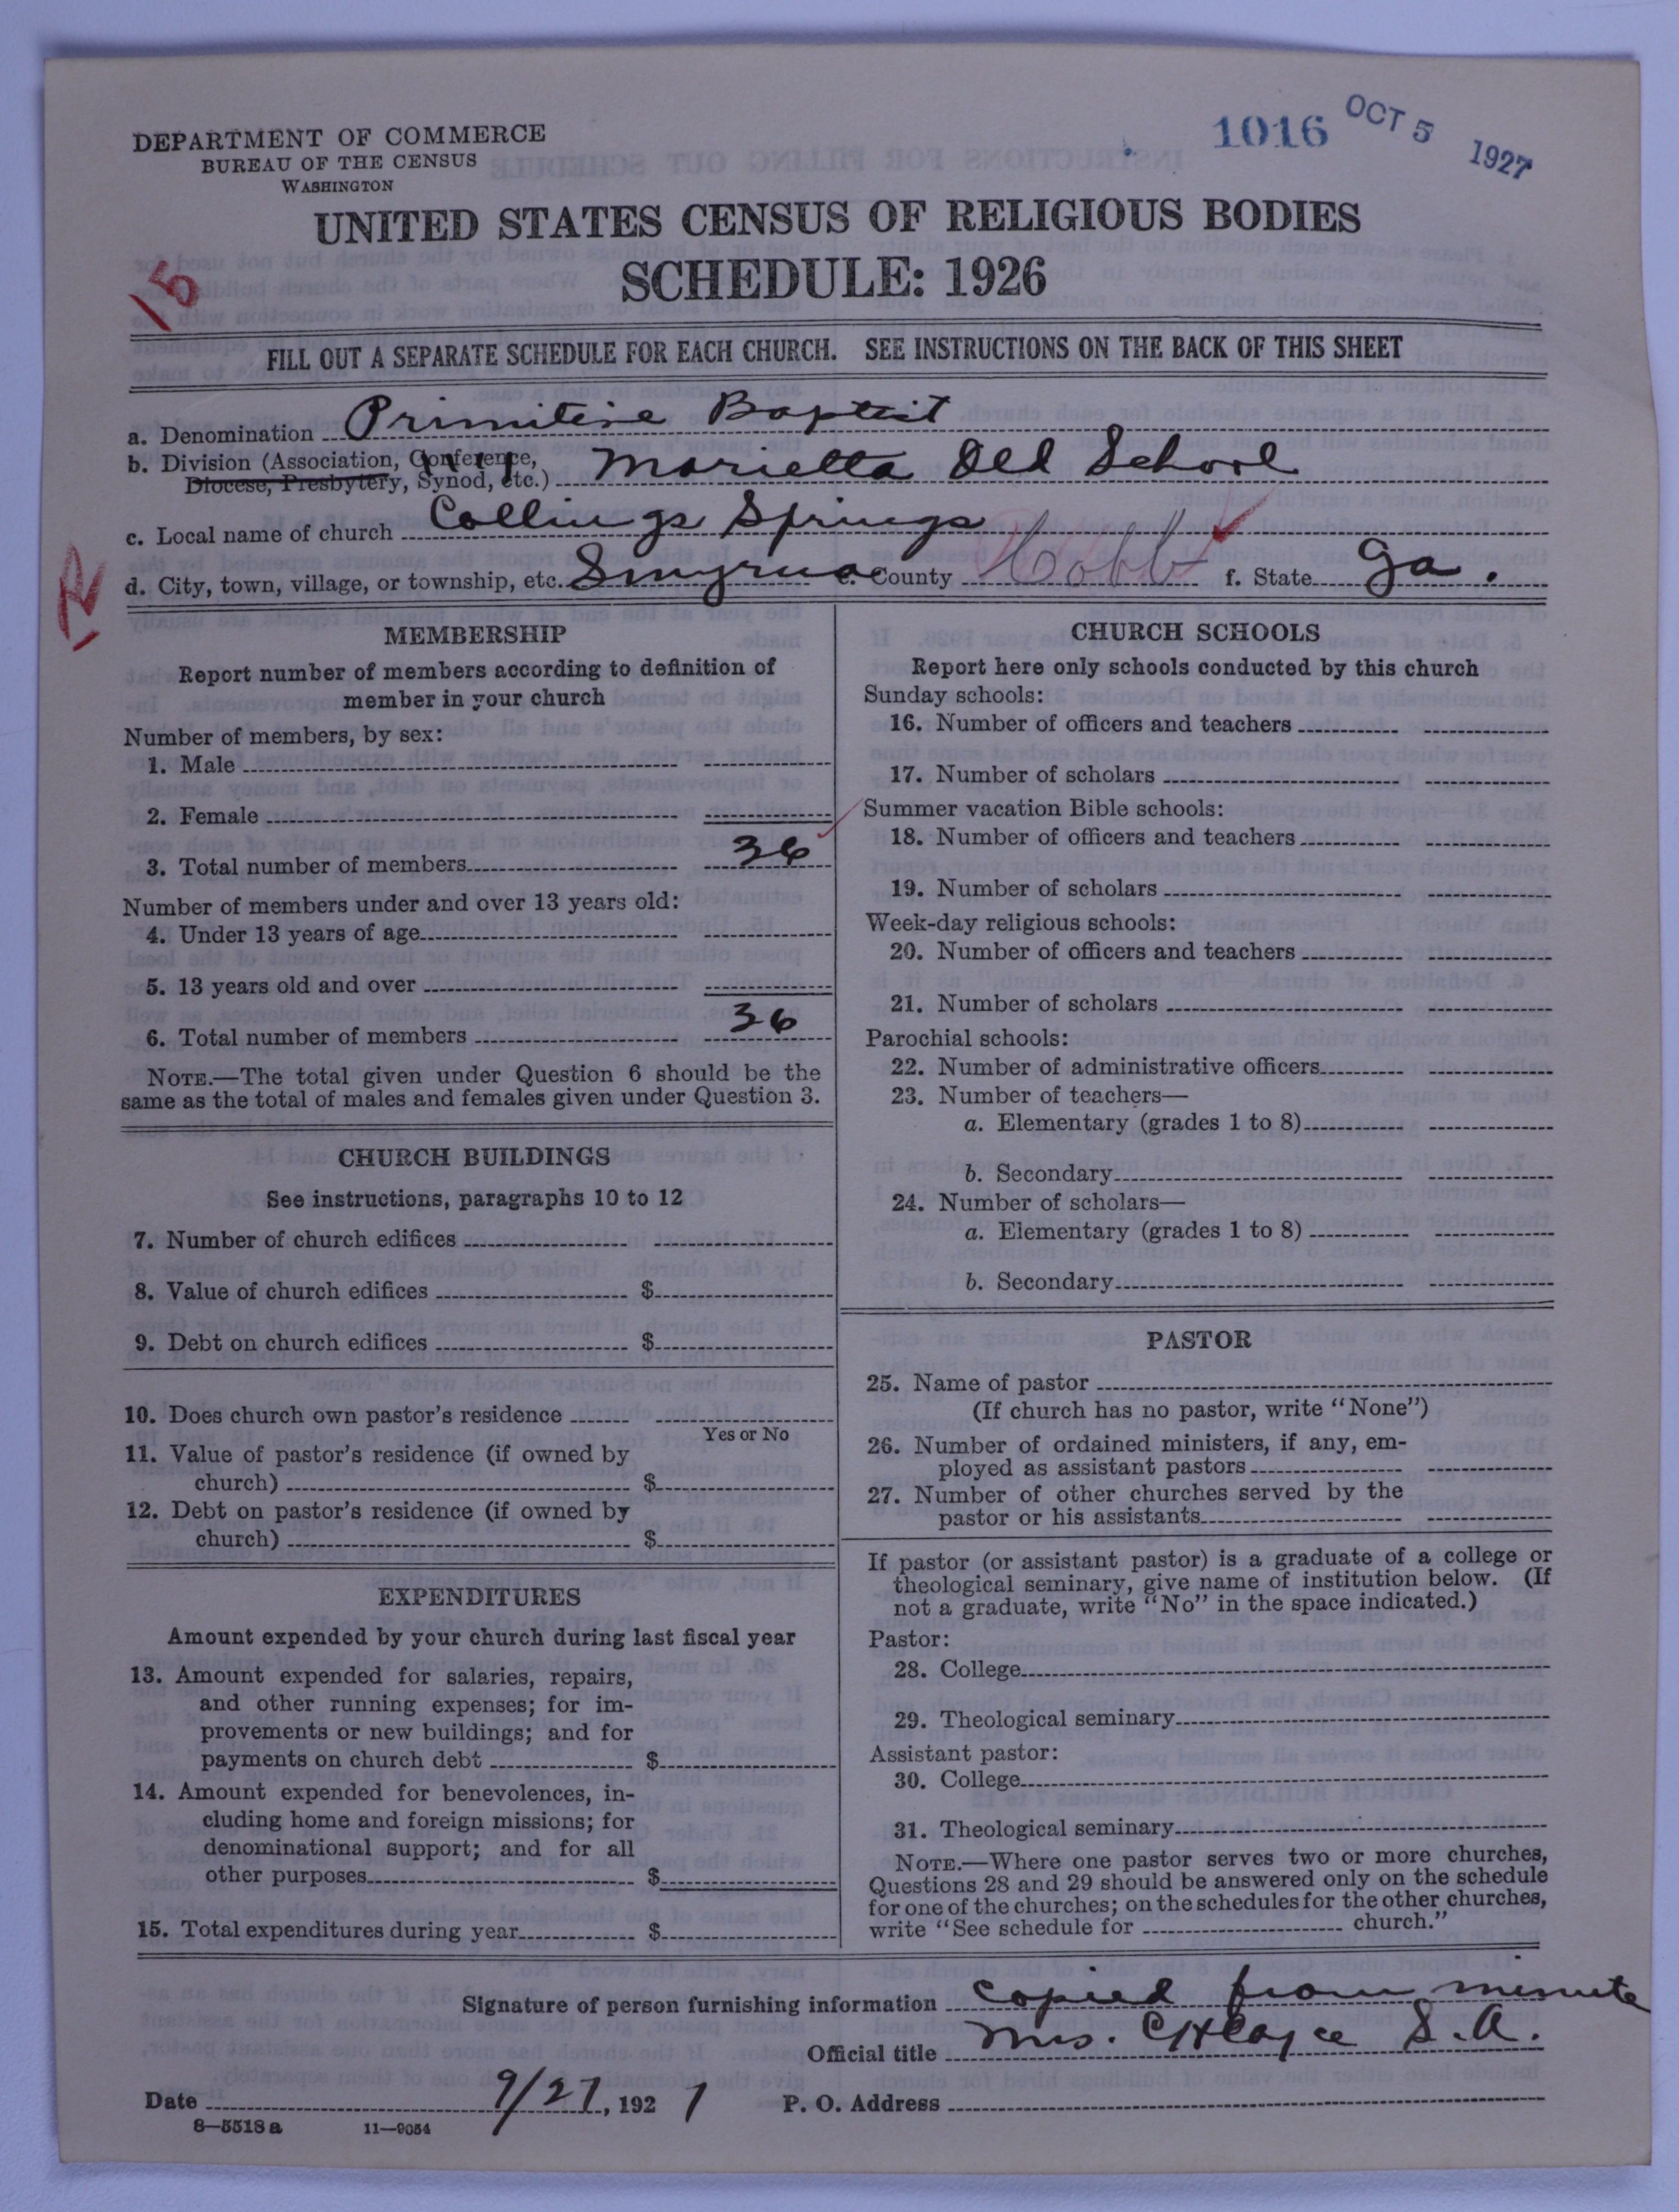 1016 OCT 5 1927
DEPARTMENT OF COMMERCE
BUREAU OF THE CENSUS
WASHINGTON
UNITED STATES CENSUS OF RELIGIOUS BODIES
SCHEDULE: 1926
15
FILL OUT A SEPARATE SCHEDULE FOR EACH CHURCH. SEE INSTRUCTIONS ON THE BACK OF THIS SHEET
a. Denomination Primitive Baptist
b. Division (Association, Conference, Diocese, Presbytery, Synod, etc.) Marietta Old School
c. Local name of church Collings Springs
d. City, town, village, or township, etc. Smyrna e. County Cobb f. State Ga.
R
MEMBERSHIP
Report number of members according to definition of
member in your church
Number of members, by sex:
1. Male
2. Female
3. Total number of members 36
Number of members under and over 13 years old:
4. Under 13 years of age
5. 13 years old and over
6. Total number of members 36
NOTE.—The total given under Question 6 should be the
same as the total of males and females given under Question 3.
CHURCH BUILDINGS
See instructions, paragraphs 10 to 12
7. Number of church edifices
8. Value of church edifices $
9. Debt on church edifices $
10. Does church own pastor's residence
Yes or No
11. Value of pastor's residence (if owned by
church) $
12. Debt on pastor's residence (if owned by
church) $
EXPENDITURES
Amount expended by your church during last fiscal year
13. Amount expended for salaries, repairs,
and other running expenses; for im-
provements or new buildings; and for
payments on church debt $
14. Amount expended for benevolences, in-
cluding home and foreign missions; for
denominational support; and for all
other purposes $
15. Total expenditures during year $
CHURCH SCHOOLS
Report here only schools conducted by this church
Sunday schools:
16. Number of officers and teachers
17. Number of scholars
Summer vacation Bible schools:
18. Number of officers and teachers
19. Number of scholars
Week-day religious schools:
20. Number of officers and teachers
21. Number of scholars
Parochial schools:
22. Number of administrative officers
23. Number of teachers—
a. Elementary (grades 1 to 8)
b. Secondary
24. Number of scholars—
a. Elementary (grades 1 to 8)
b. Secondary
PASTOR
25. Name of pastor
(If church has no pastor, write "None")
26. Number of ordained ministers, if any, em-
ployed as assistant pastors
27. Number of other churches served by the
pastor or his assistants
If pastor (or assistant pastor) is a graduate of a college or
theological seminary, give name of institution below. (If
not a graduate, write "No" in the space indicated.)
Pastor:
28. College
29. Theological seminary
Assistant pastor:
30. College
31. Theological seminary
NOTE.—Where one pastor serves two or more churches,
Questions 28 and 29 should be answered only on the schedule
for one of the churches; on the schedules for the other churches,
write "See schedule for church."
Signature of person furnishing information copied from minute
Official title Mrs. C H Cayce S.A.
Date 9/27, 1927 P. O. Address
8—5518a 11—9054